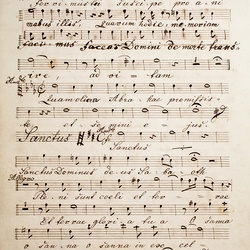 for vi mus tu Susci pe pro a ni
mabus illis, Quarum hodie me moriam
faci mus fac eas Domini de morte trans
ire ad vi tam
Quam olim Abra hae promisis
ti et semini e jus.
Sanctus
Sanctus
Sanctus Dominus deus Sa ba oth
Allegro
Ple ni sunt coeli et ter
rae
Et terrae glori a tu a O sanna
o san na o sanna in ex cel